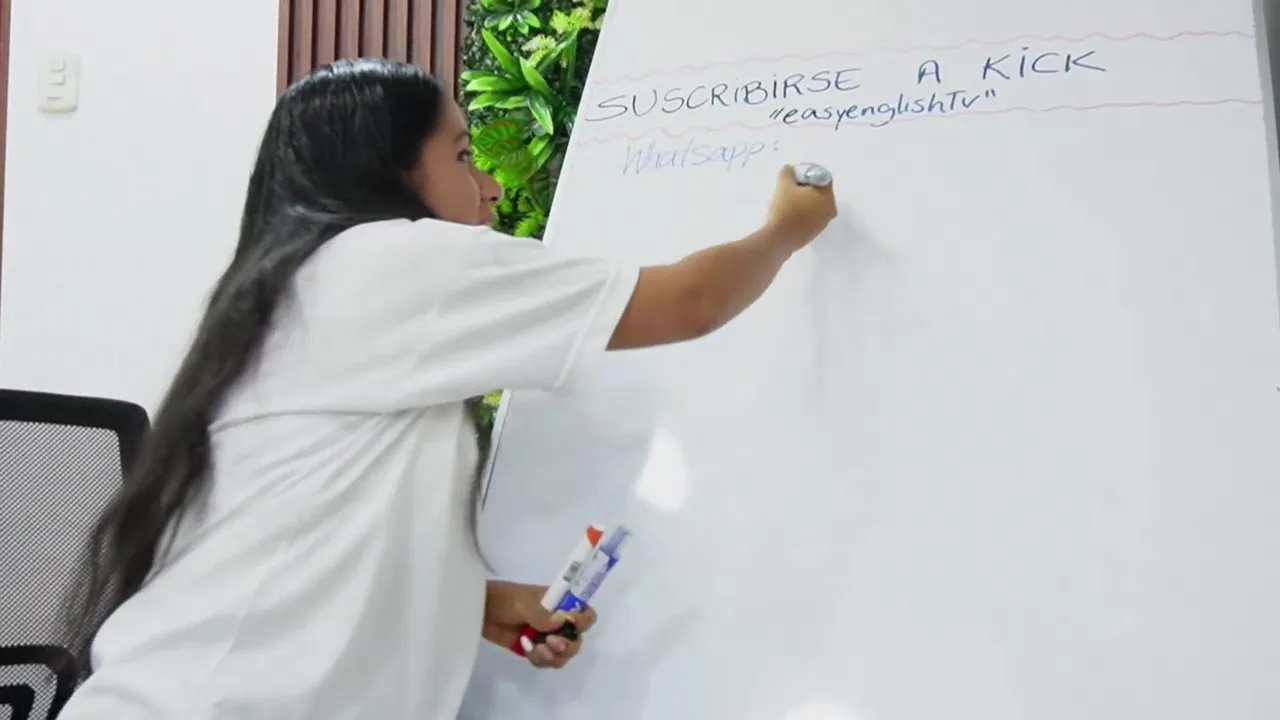 SUSCRIBIRSE A KICK
"easyenglishTv"
Whatsapp: